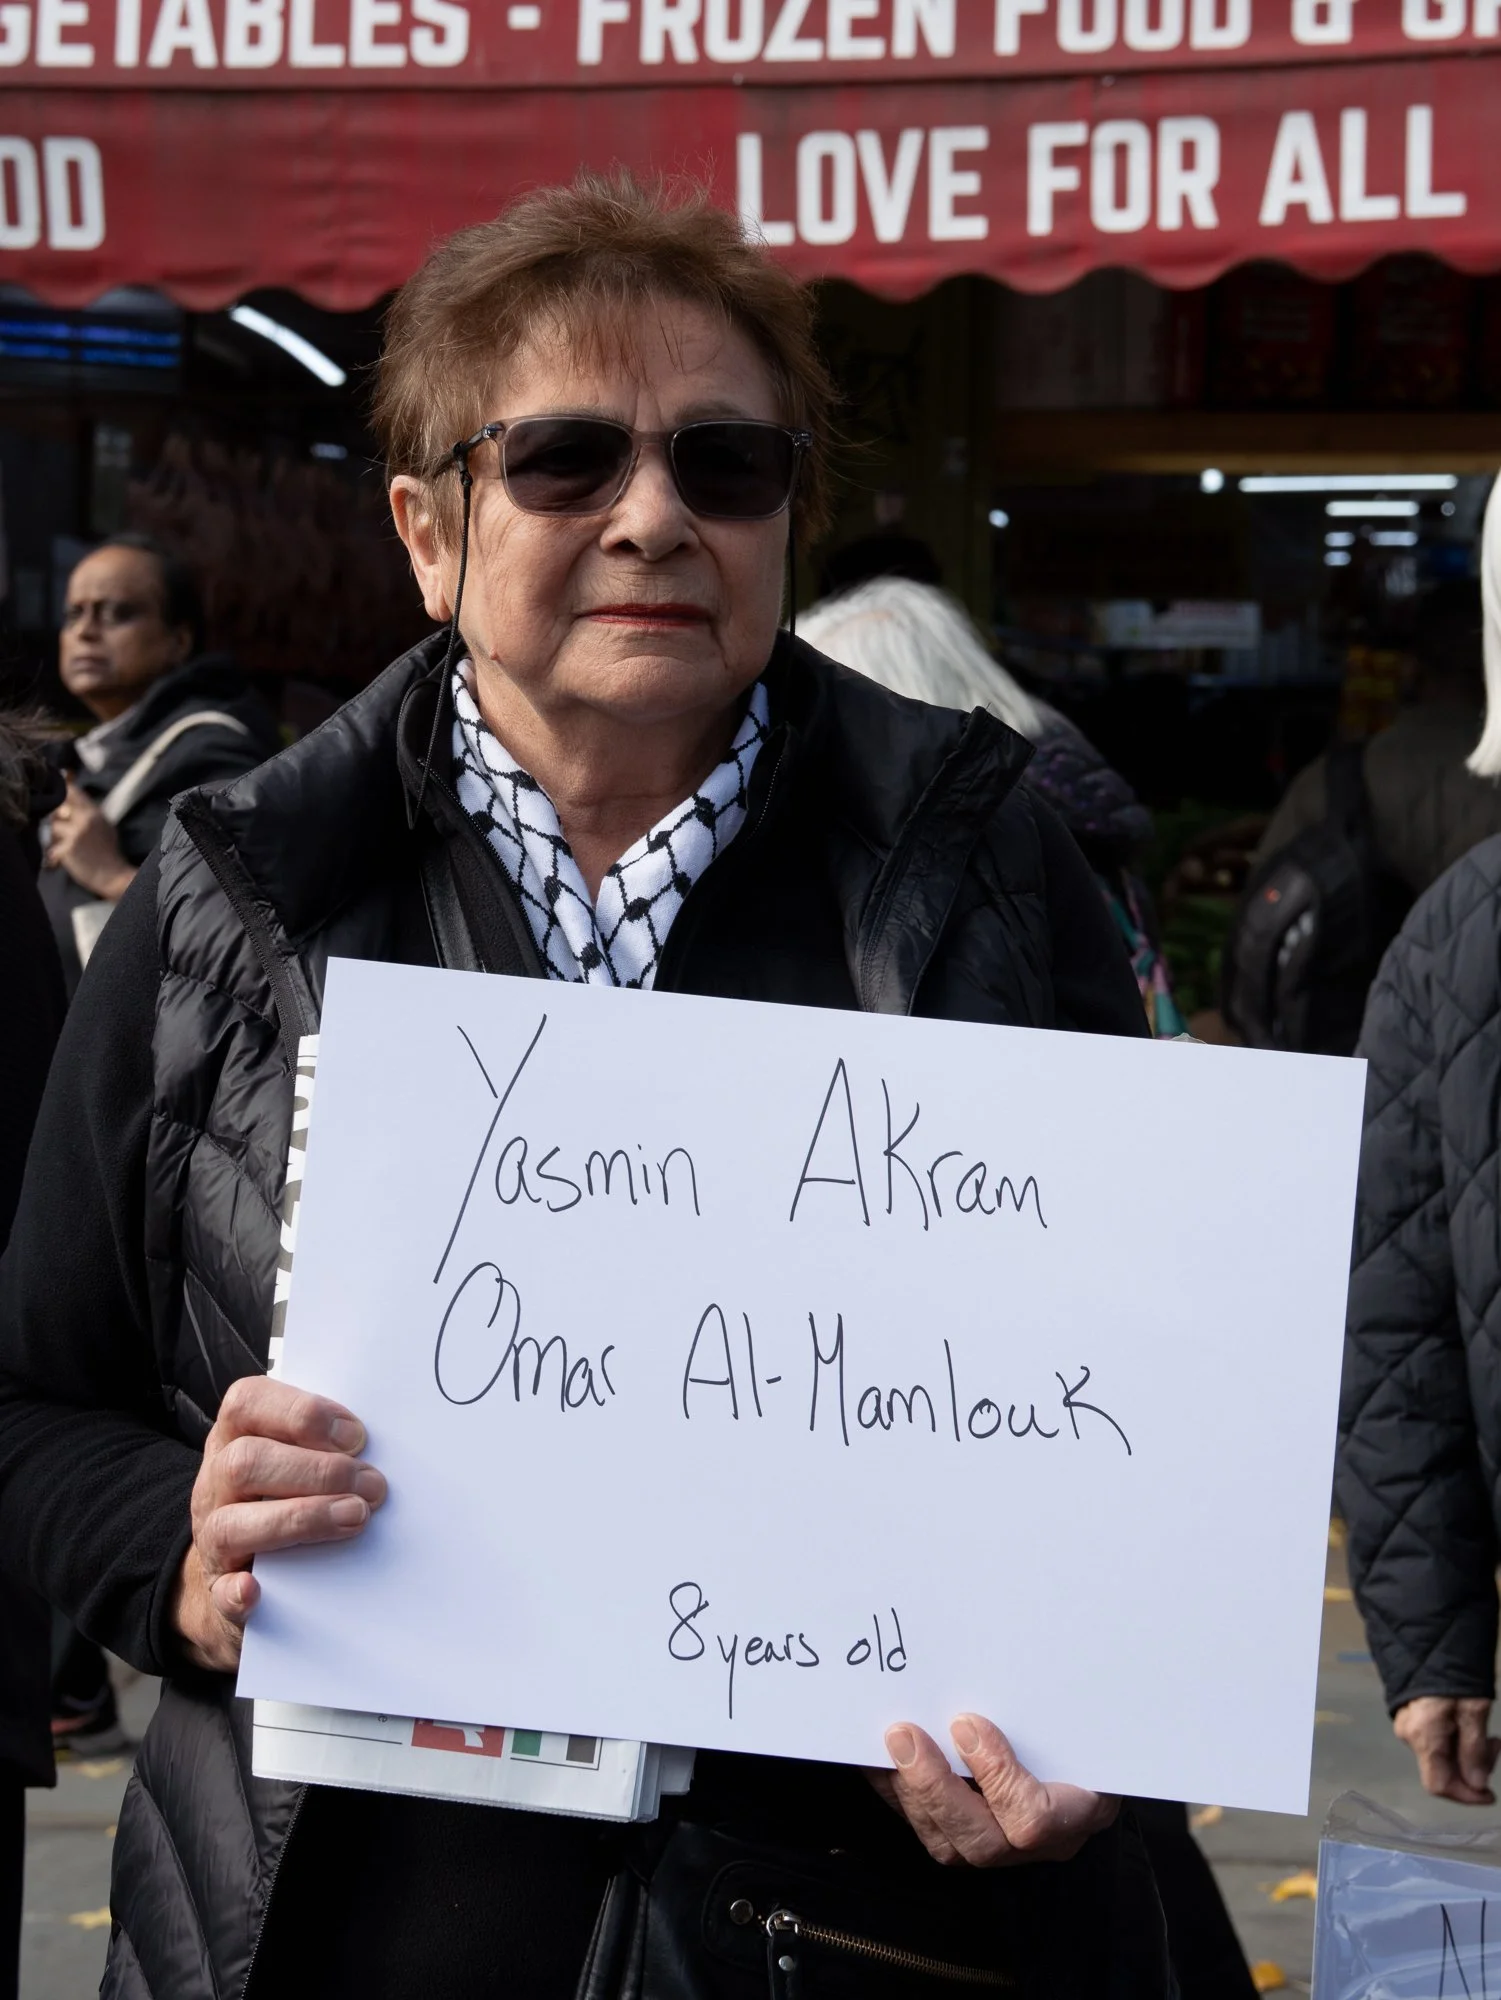 GETABLES - FROZEN FOOD & GR
OD
LOVE FOR ALL
Yasmin Akram
Omar Al-Mamlouk
8 years old
N